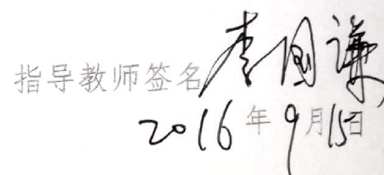 指导教师签名 李国谦
2016年9月15日